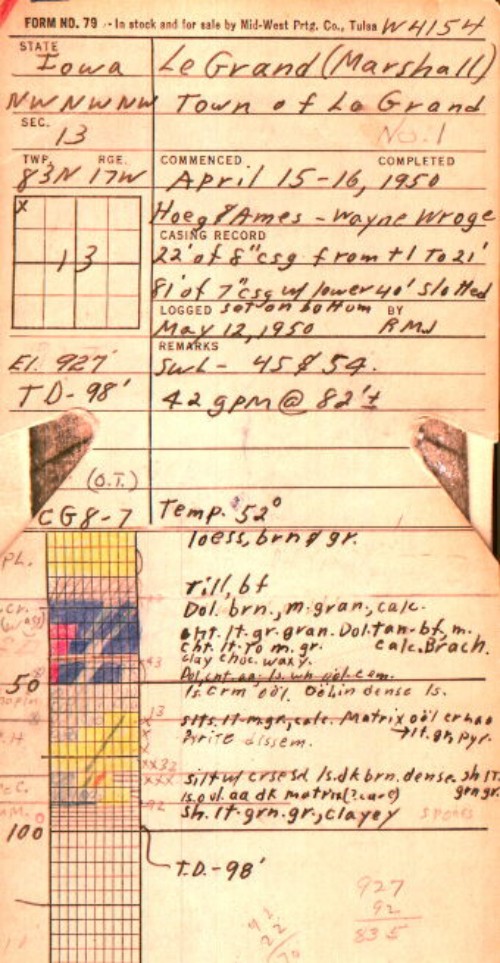 FORM NO. 79 -- In stock and for sale by Mid-West Prtg. Co., Tulsa W4154
STATE
Iowa Le Grand (Marshall)
NW NW NW Town of La Grand
SEC.
13 No. 1
TWP. RGE. COMMENCED COMPLETED
83N 17W April 15-16, 1950
X
Hoeg & Ames - Wayne Wroge
CASING RECORD
13 22' of 8" csg from +1 to 21'
81' of 7" csg w/ lower 40' slotted
LOGGED set on bottom BY
May 12, 1950 RMJ
REMARKS
El. 927' SWL - 45 & 54.
TD - 98' 42 gpm @ 82'±
(O.T.)
CG8-7 Temp. 52°
loess, brn & gr.
PL.
Till, bf
Dol. brn., m. gran., calc.
cht. lt. gr. gran. Dol. tan-bf, m.
cht. lt. to m. gr. calc. Brach.
clay choc. waxy.
50
ls. crm ööl. Öölin dense ls.
slts. lt-m.gr., calc. Matrix
Pyrite dissem. → lt. gr, pyr.
.H.
xx32
xxx silt w/ crse sd ls. dk brn. dense. sh lt.
grn gr.
ls. ool. aa dk matrix
92
sh. lt-grn. gr., clayey spores
100
T.D. - 98'
927
92
835